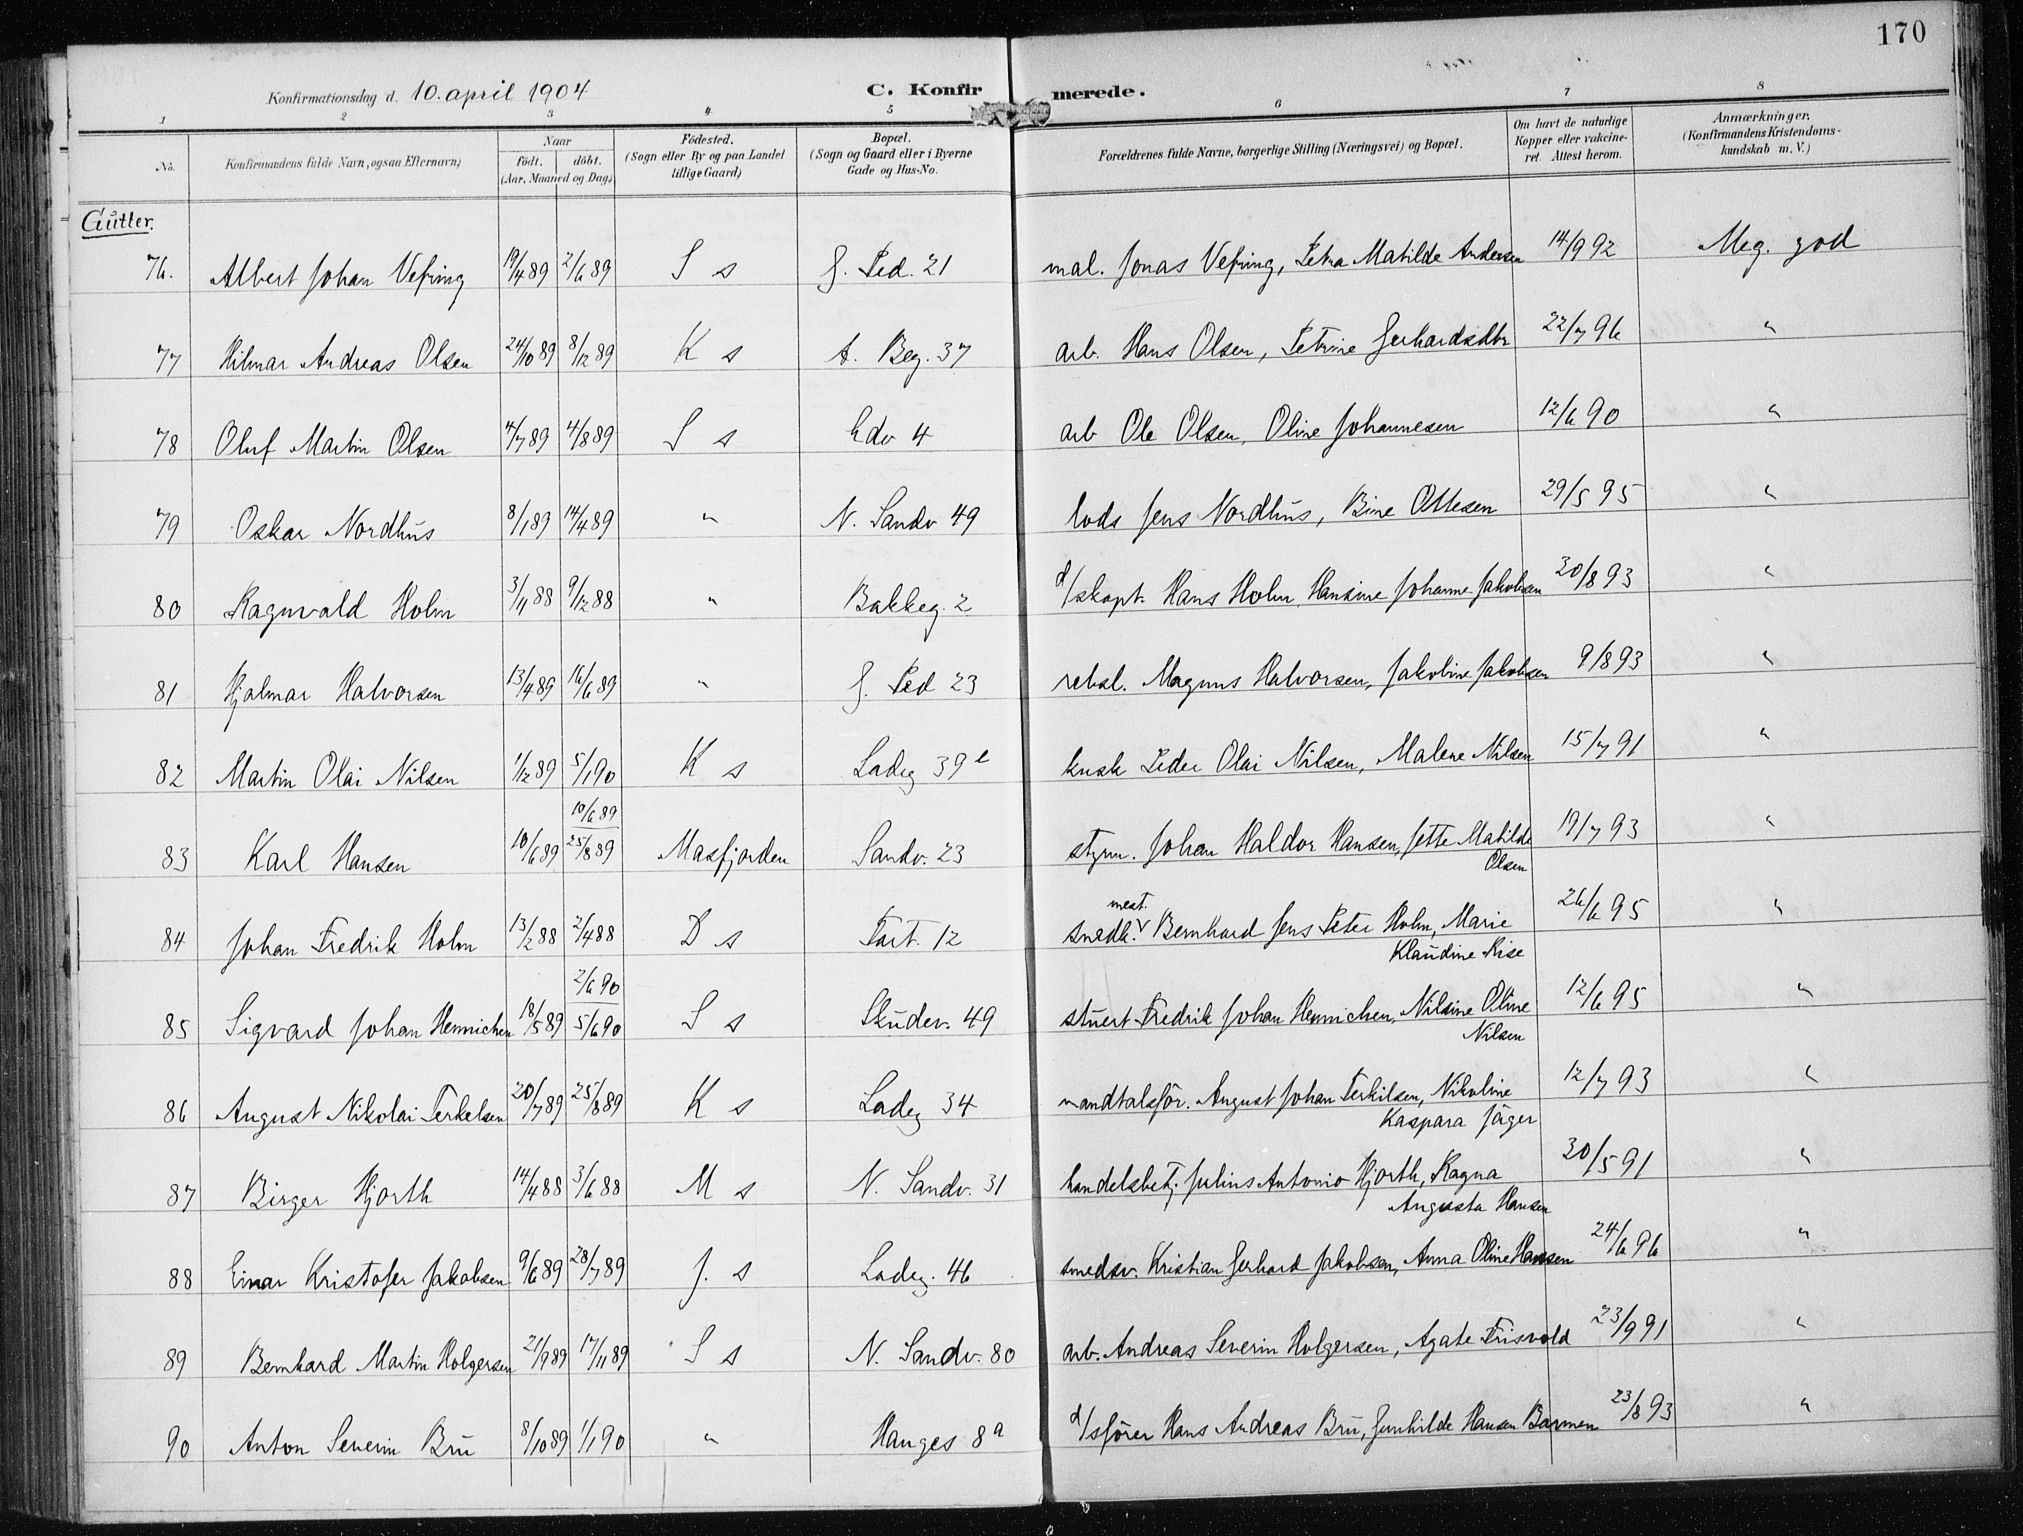 170
Konfirmationsdag d. 10. april 1904 C. Konfirmerede.
1 2 3 4 5 6 7 8
No. Konfirmandens fulde Navn, ogsaa Efternavn) Naar født. døbt. (Aar, Maaned og Dag) Fødested. (Sogn eller By og paa Landet tillige Gaard) Bopæl. (Sogn og Gaard eller i Byerne Gade og Hus-No. Forældrenes fulde Navne, borgerlige Stilling (Næringsvei) og Bopæl. Om havt de naturlige Kopper eller vakcineret. Attest herom. Anmærkninger. (Konfirmandens Kristendomskundskab m. V.)
Gutter.
76. Albert Johan Vefring 19/4 89 2/6 89 S s J. Ped. 21 mal. Jonas Vefring, Petra Matilde Andersen 14/9 92 Meg. god
77 Hilmar Andreas Olsen 24/10 89 8/12 89 K s A. Beg. 37 arb. Hans Olsen, Petrine Gerhardsdtr 22/7 96 "
78 Oluf Martin Olsen 4/7 89 4/8 89 S s Edv 4 arb Ole Olsen, Oline Johannesen 12/6 90 "
79 Oskar Nordhus 8/1 89 14/4 89 " N. Sandv 49 lods Jens Nordhus, Bine Ottesen 29/5 95 "
80 Ragnvald Holm 3/11 88 9/12 88 " Bakkeg. 2 d/skapt. Hans Holm, Hansine Johanne Jakobsen 30/8 93 "
81 Hjalmar Halvorsen 13/4 89 16/6 89 " J. Ped 23 rebsl. Magnus Halvorsen, Jakobine Jakobsen 9/8 93 "
82 Martin Olai Nilsen 1/12 89 5/1 90 K s Ladeg 39 e kusk Peder Olai Nilsen, Malene Nilsen 15/7 91 "
10/6 89
83 Karl Hansen 10/6 89 25/8 89 Masfjorden Sandv. 23 styrm. Johan Haldor Hansen, Jette Matilde 19/7 93 "
Olsen
mest.
84 Johan Fredrik Holm 13/2 88 2/4 88 D s Fort. 12 snedk. v Bernhard Jens Peter Holm, Marie 26/6 95 "
Klaudine Rise
2/6 90
85 Sigvard Johan Hennichen 18/5 89 5/6 90 S s Skudev. 49 stuert Fredrik Johan Hennichen, Nilsine Oline 12/6 95 "
Nilsen
86 August Nikolai Terkelsen 20/7 89 25/8 89 K s Ladeg 34 mandtalsför. August Johan Terkilsen, Nikoline 12/7 93 "
Kaspara Jäger
87 Birger Hjorth 14/4 88 3/6 88 M s N. Sandv. 31 handelsbetj. Julius Antonio Hjorth, Ragna 30/5 91 "
Augusta Hansen
88 Einar Kristofer Jakobsen 9/6 89 28/7 89 J. s Ladeg. 46 smedsv. Kristian Gerhard Jakobsen, Anna Oline Hansen 24/6 96 "
89 Bernhard Martin Holgersen 21/9 89 17/11 89 S s N. Sandv. 80 arb. Andreas Severin Holgersen, Agate Frisvold 23/9 91 "
90 Anton Severin Bru 8/10 89 1/1 90 " Hauges 8 a d/sfører Hans Andreas Bru, Gunhilde Hansen Barmen 23/8 93 "